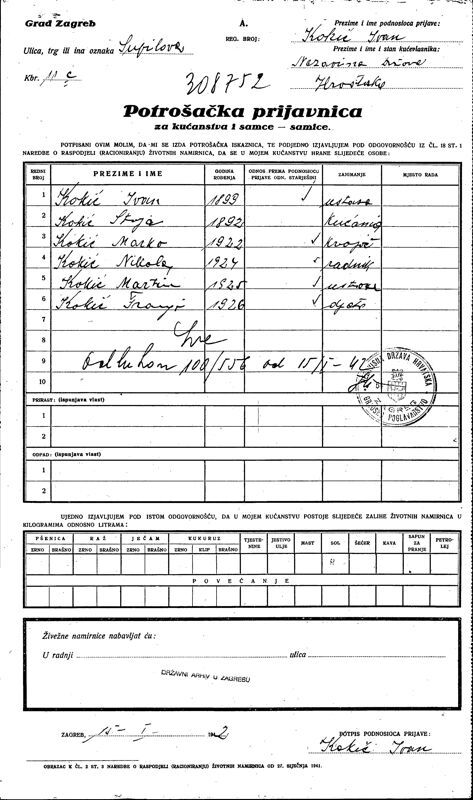 Grad Zagreb
A.
Prezime i ime podnosioca prijave:
REG. BROJ:
Kokić Ivan
Ulica, trg ili ina oznaka Supilova
Prezime i ime i stan kućevlasnika:
Nezavisna Država
Kbr. 11 c
308752
Hrvatska
Potrošačka prijavnica
za kućanstva i samce — samice.
POTPISANI OVIM MOLIM, DA MI SE IZDA POTROŠAČKA ISKAZNICA, TE PODJEDNO IZJAVLJUJEM POD ODGOVORNOŠĆU IZ ČL. 18 ST. 1
NAREDBE O RASPODJELI (RACIONIRANJU) ŽIVOTNIH NAMIRNICA, DA SE U MOJEM KUĆANSTVU HRANE SLIJEDEĆE OSOBE:
REDNI BROJ PREZIME I IME GODINA ROĐENJA ODNOS PREMA PODNOSIOCU PRIJAVE ODN. STARJEŠINI ZANIMANJE MJESTO RADA
1 Kokić Ivan 1899
2 Kokić Staja 1892
3 Kokić Marko 1922 krojač
4 Kokić Nikola 1924 radnik
5 Kokić Martin 1925
6 Kokić Franjo 1926
7
8
9 100/556 od 15/I - 42
10
PRIRAST: (ispunjava vlast)
1
2
ODPAD: (ispunjava vlast)
1
2
UJEDNO IZJAVLJUJEM POD ISTOM ODGOVORNOŠĆU, DA U MOJEM KUĆANSTVU POSTOJE SLIJEDEĆE ZALIHE ŽIVOTNIH NAMIRNICA U
KILOGRAMIMA ODNOSNO LITRAMA:
PŠENICA RAŽ JEČAM KUKURUZ TJESTENINE JESTIVO ULJE MAST SOL ŠEĆER KAVA SAPUN ZA PRANJE PETROLEJ
ZRNO BRAŠNO ZRNO BRAŠNO ZRNO BRAŠNO ZRNO KLIP BRAŠNO
POVEĆANJE
Živežne namirnice nabavljat ću:
U radnji ulica
DRŽAVNI ARHIV U ZAGREBU
ZAGREB, 15-I- 1942
POTPIS PODNOSIOCA PRIJAVE:
Kokić Ivan
OBRAZAC K ČL. 2 ST. 3 NAREDBE O RASPODJELI (RACIONIRANJU) ŽIVOTNIH NAMIRNICA OD 27. SIJEČNJA 1941.